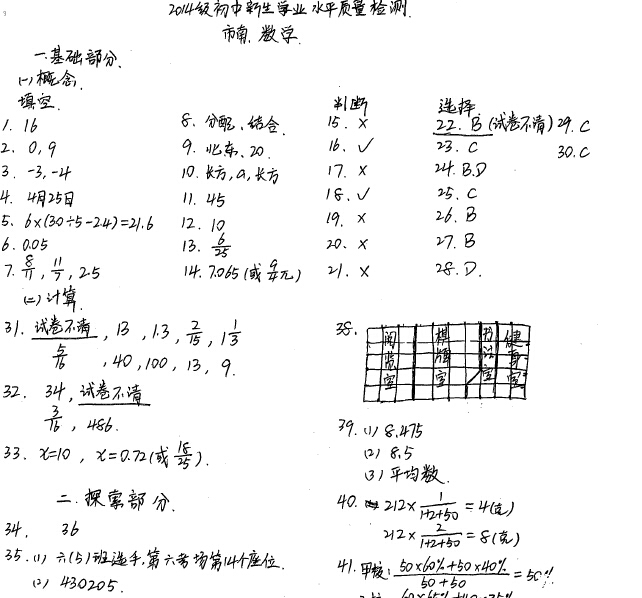 2014级初中新生学业水平质量检测.
市南.数学.
一.基础部分.
(一)概念.
填空.
1. 16
2. 0,9
3. -3,-4
4. 4月25日
5. 6×(30÷5-2.4)=21.6
6. 0.05
7. 8/11, 11/7, 25
8. 分配、结合.
9. 北东、20.
10. 长方,a,长方
11. 45
12. 10
13. 6/25
14. 7.065(或9/4π)
判断
15. ×
16. ✓
17. ×
18. ✓
19. ×
20. ×
21. ×
选择
22. B (试卷不清)
23. C
24. B.D
25. C
26. B
27. B
28. D.
29. C
30. C
(二)计算.
31. 试卷不清, 13, 1.3, 2/15, 1 1/3
5/16, 40,100, 13, 9.
32. 34, 试卷不清
3/16, 486.
33. x=10, x=0.72(或18/25).
二.探索部分.
34. 36
35. (1) 六(5)班选手,第六考场第14个座位.
(2) 430205.
38.
阅览室
棋牌室
书法室
健身室
39. (1) 8.475
(2) 8.5
(3) 平均数.
40. 212×1/(1+2+50)=4(克)
212×2/(1+2+50)=8(克)
41. 甲校: (50×60%+50×40%)/(50+50)=50%